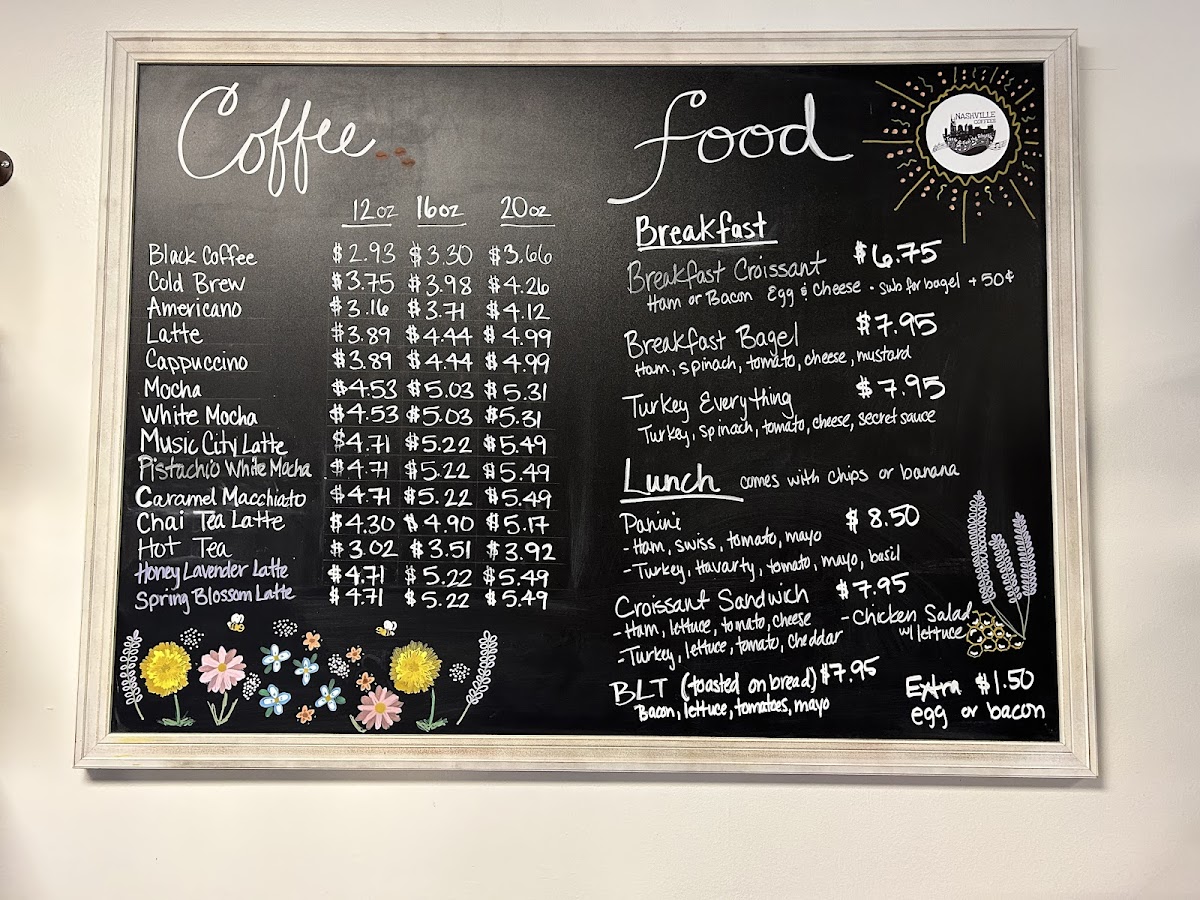 Coffee
12oz 16oz 20oz
Black Coffee $2.93 $3.30 $3.66
Cold Brew $3.75 $3.98 $4.26
Americano $3.16 $3.71 $4.12
Latte $3.89 $4.44 $4.99
Cappuccino $3.89 $4.44 $4.99
Mocha $4.53 $5.03 $5.31
White Mocha $4.53 $5.03 $5.31
Music City Latte $4.71 $5.22 $5.49
Pistachio White Mocha $4.71 $5.22 $5.49
Caramel Macchiato $4.71 $5.22 $5.49
Chai Tea Latte $4.30 $4.90 $5.17
Hot Tea $3.02 $3.51 $3.92
Honey Lavender Latte $4.71 $5.22 $5.49
Spring Blossom Latte $4.71 $5.22 $5.49
food
NASHVILLE
COFFEES
Breakfast
Breakfast Croissant $6.75
Ham or Bacon Egg & Cheese • Sub for bagel + 50¢
Breakfast Bagel $7.95
Ham, spinach, tomato, cheese, mustard
Turkey Everything $7.95
Turkey, spinach, tomato, cheese, secret sauce
Lunch comes with chips or banana
Panini $8.50
- Ham, swiss, tomato, mayo
- Turkey, Havarty, tomato, mayo, basil
Croissant Sandwich $7.95
- Ham, lettuce, tomato, cheese - Chicken Salad
w/ lettuce
- Turkey, lettuce, tomato, cheddar
BLT (toasted on bread) $7.95
Bacon, lettuce, tomatoes, mayo
Extra $1.50
egg or bacon